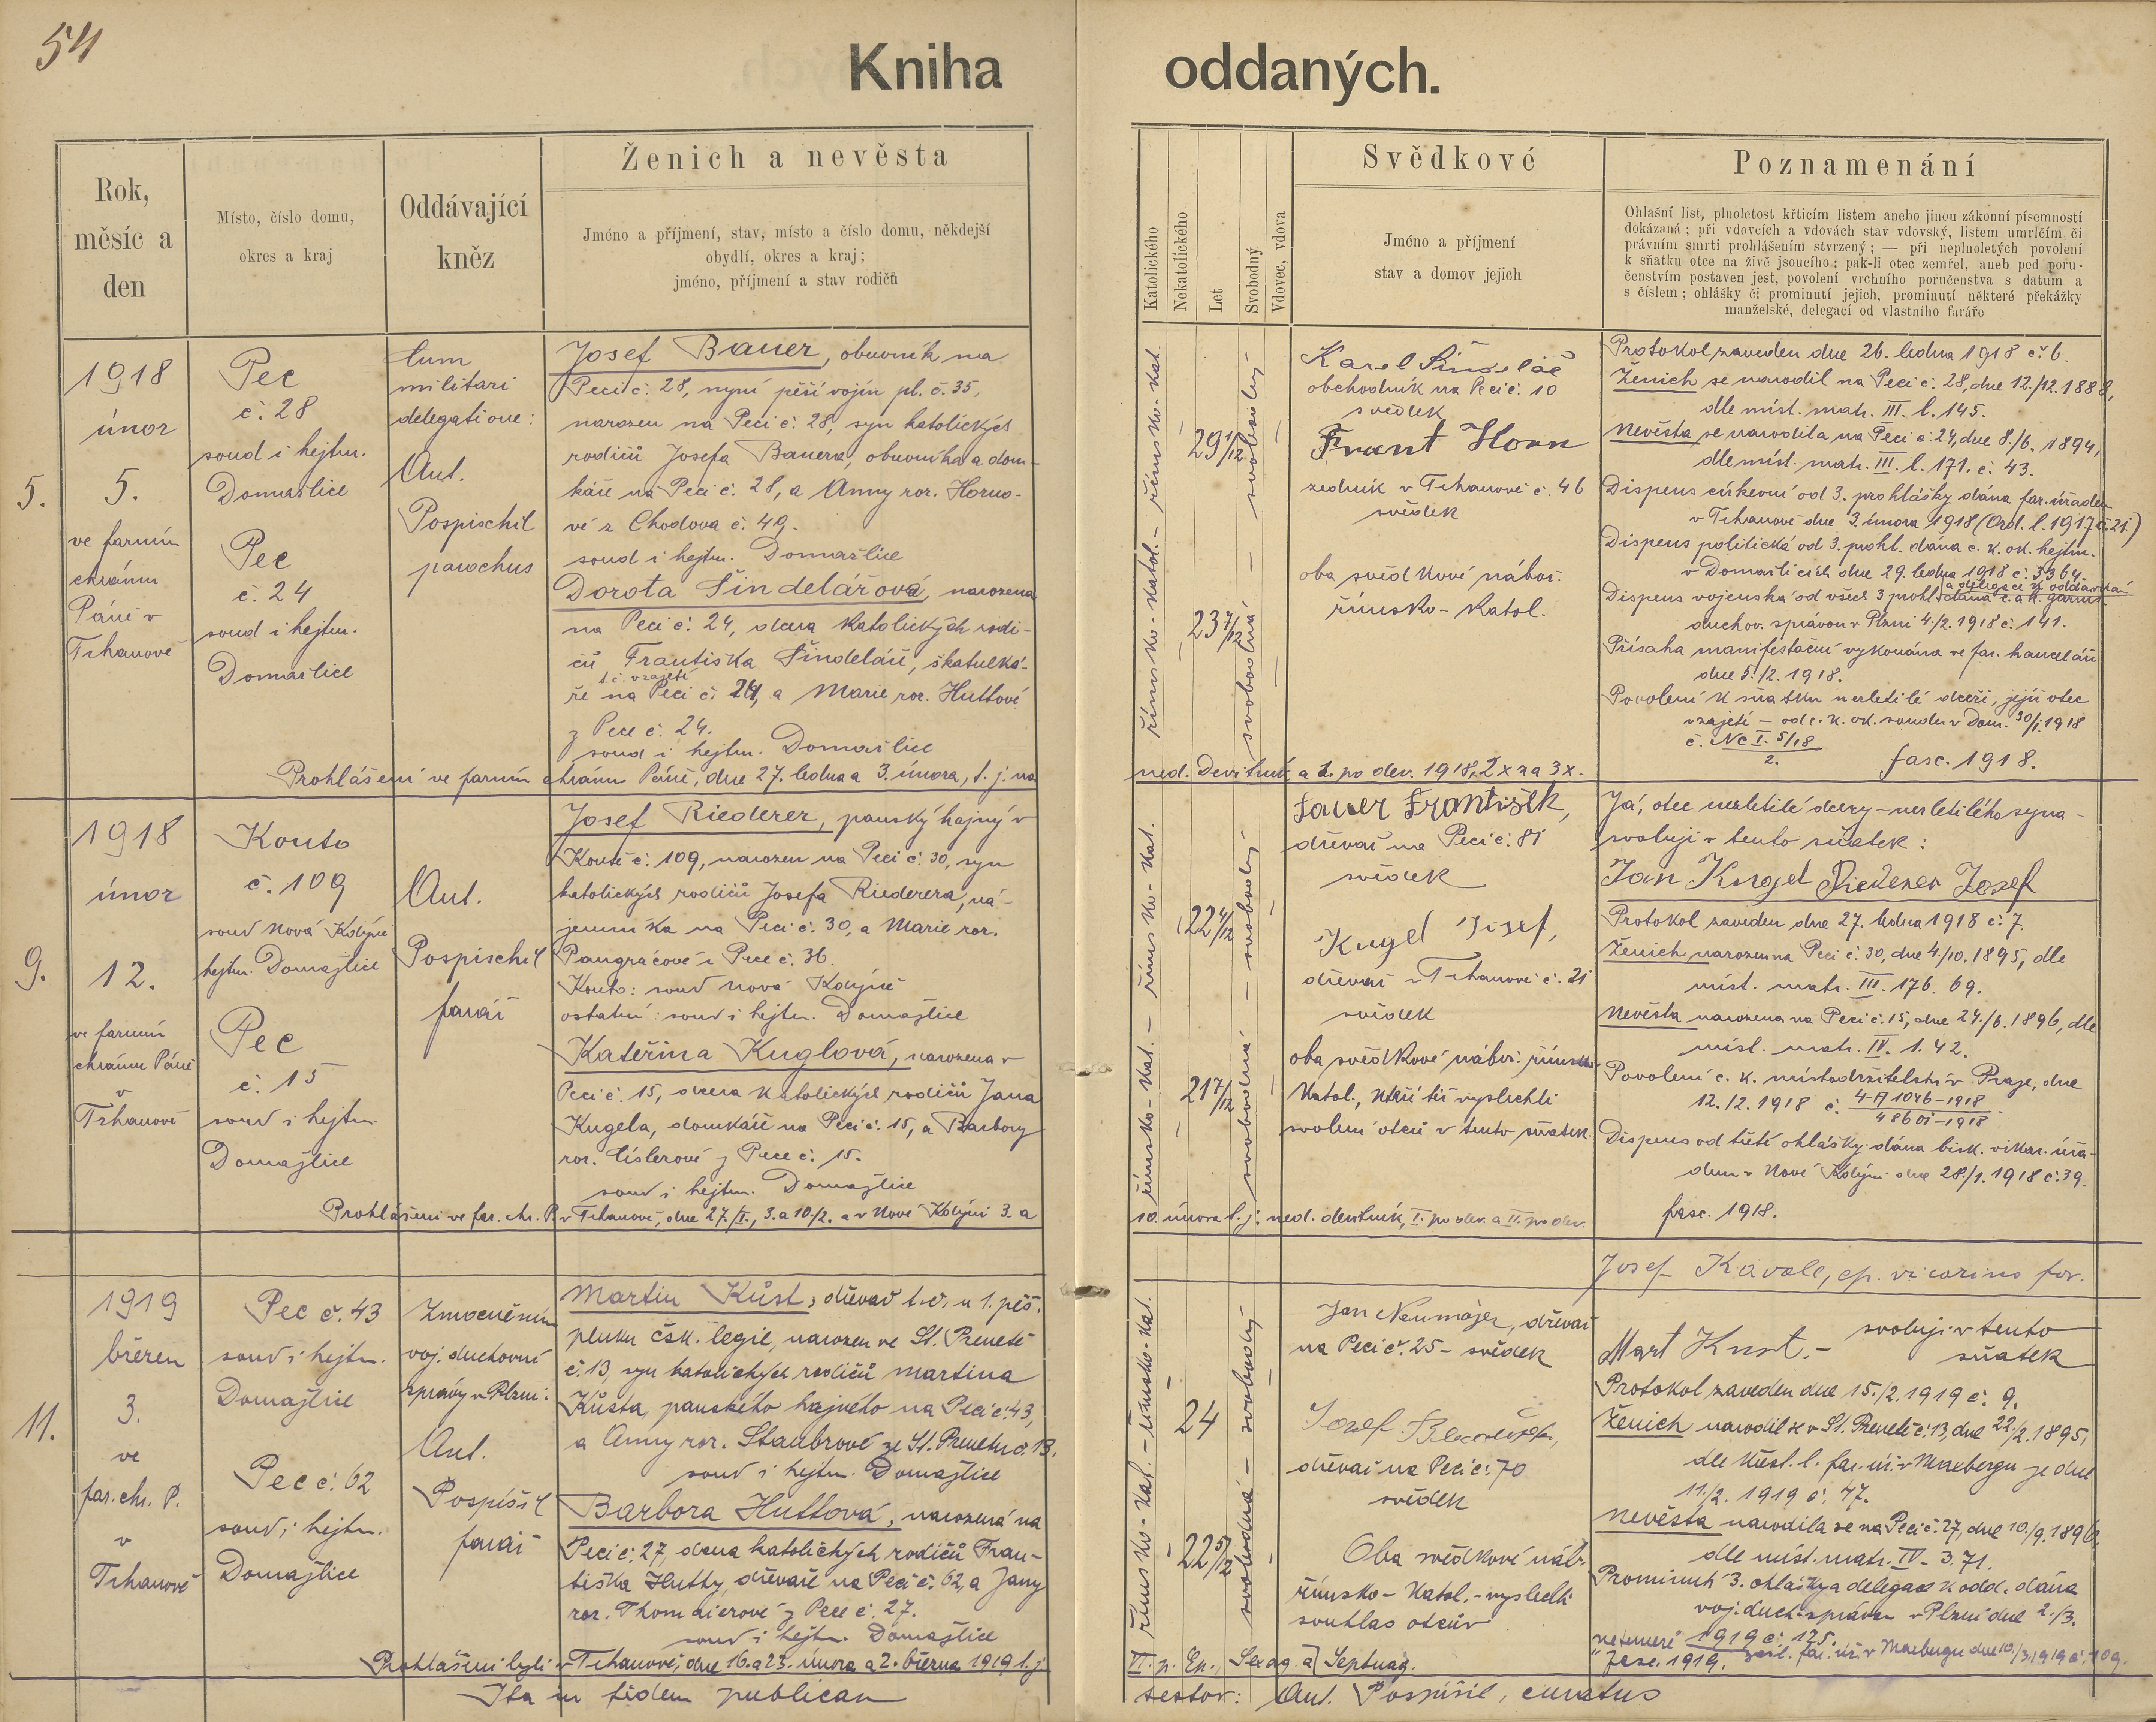 54
Kniha oddaných.
Rok,
měsíc a
den
Místo, číslo domu,
okres a kraj
Oddávající
kněz
Ženich a nevěsta
Jméno a příjmení, stav, místo a číslo domu, někdejší
obydlí, okres a kraj;
jméno, příjmení a stav rodičů
Katolického
Nekatolického
Let
Svobodný
Vdovec, vdova
Svědkové
Jméno a příjmení
stav a domov jejich
Poznamenání
Ohlašní list, plnoletost křticím listem anebo jinou zákonní písemností
dokázaná; při vdovcích a vdovách stav vdovský, listem umrlčím, či
právním smrti prohlášením stvrzený; — při neplnoletých povolení
k sňatku otce na živě jsoucího; pak-li otec zemřel, aneb pod poru-
čenstvím postaven jest, povolení vrchního poručenstva s datum a
s číslem; ohlášky či prominutí jejich, prominutí některé překážky
manželské, delegací od vlastního faráře
5.
1918
únor
5.
ve farním
chrámu
Páně v
Trhanově
Pec
č. 28
soud i hejtm.
Domažlice
Pec
č. 24
soud i hejtm.
Domažlice
Cum
militari
delegatione:
Ant.
Pospischil
parochus
Josef Bauer, obuvník na
Peci č. 28, nyní pěší vojín pl. č. 35,
narozen na Peci č. 28, syn katolických
rodičů Josefa Bauera, obuvníka a dom-
káře na Peci č. 28, a Anny roz. Horno-
vé z Chodova č. 49.
soud i hejtm. Domažlice
Dorota Šindelářová, narozena
na Peci č. 24, dcera katolických rodi-
čů, Františka Šindeláře, škatulká-
t. č. v zajetí
ře na Peci č. 24, a Marie roz. Huttové
z Pece č. 24.
soud i hejtm. Domažlice
římsko-katol. – římsko-kat.
29 1/12
23 7/12
svobodná – svobodný
Karel Šindelář
obchodník na Peci č. 10
svědek
Frant Horn
zedník v Trhanově č. 46
svědek
oba svědkové nábož.
římsko-katol.
Protokol zaveden dne 26. ledna 1918 č. 6.
Ženich se narodil na Peci č. 28, dne 12./12. 1888,
dle míst. matr. III. l. 145.
Nevěsta se narodila na Peci č. 24, dne 8./6. 1894,
dle míst. matr. III. l. 171. č. 43.
Dispens církevní od 3. prohlášky dána far. úřadem
v Trhanově dne 3. února 1918 (Ord. l. 1917 č. 21.)
Dispens politická od 3. prohl. dána c. k. ok. hejtm.
v Domažlicích dne 29. ledna 1918 č. 3364.
a delegace k oddavkám
Dispens vojenská od všech 3 prohl. dána c. a k. garnis.
duchov. správou v Plzni 4./2. 1918 č. 141.
Přísaha manifestační vykonána ve far. kanceláři
dne 5./2. 1918.
Povolení k sňatku nezletilé dceři, jejíž otec
v zajetí – od c. k. ok. soudu v Dom. 30/1. 1918
č. Nc I. 5/18
2.
fasc. 1918.
Prohlášeni ve farním chrámu Páně, dne 27. ledna a 3. února, t. j. na ned. Devítník a I. po dev. 1918, 2x za 3x.
9.
1918
únor
12.
ve farním
chrámu Páně
v
Trhanově
Kouto
č. 109
soud Nová Kdyně
hejtm. Domažlice
Pec
č. 15
soud i hejtm.
Domažlice
Ant.
Pospischil
farář
Josef Riederer, panský hajný v
Koutě č. 109, narozen na Peci č. 30, syn
katolických rodičů Josefa Riederera, ná-
jemníka na Peci č. 30, a Marie roz.
Pangrácové z Pece č. 36.
Kouto: soud Nová Kdyně
ostatní: soud i hejtm. Domažlice
Kateřina Kuglová, narozena v
Peci č. 15, dcera katolických rodičů Jana
Kugela, domkáře na Peci č. 15, a Barbory
roz. Císlerové z Pece č. 15.
soud i hejtm. Domažlice
římsko-kat. – římsko-kat.
22 4/12
21 7/12
svobodná – svobodný
Sauer František,
dřevař na Peci č. 81
svědek
Kugel Josef,
dřevař v Trhanově č. 21
svědek
oba svědkové nábož. římsko-
katol., kteří též vyslechli
svolení otců v tento sňatek.
Já, otec nezletilé dcery – nezletilého syna –
svoluji v tento sňatek:
Jan Kugel Riederer Josef
Protokol zaveden dne 27. ledna 1918 č. 7.
Ženich narozen na Peci č. 30, dne 4/10. 1895, dle
míst. matr. III. 176. 69.
Nevěsta narozena na Peci č. 15, dne 24./6. 1896, dle
míst. matr. IV. 1. 42.
Povolení c. k. místodržitelství v Praze, dne
12./2. 1918 č. 4-A 1046-1918
486 Dž-1918
Dispens od třetí ohlášky dána bisk. vikar. úřa-
dem v Nové Kdyni dne 28./1. 1918 č. 39.
fasc. 1918.
Prohlášeni ve far. chr. P. v Trhanově, dne 27./I., 3. a 10./2. a v Nové Kdyni 3. a 10. února t. j. ned. devítník, I. po dev. a II. po dev.
Josef Kavale, ep. vicarius for.
11.
1919
březen
3.
ve
far. chr. P.
v
Trhanově
Pec č. 43
soud i hejtm.
Domažlice
Pec č. 62
soud i hejtm.
Domažlice
Zmocněním
voj. duchovní
správy v Plzni:
Ant.
Pospíšil
farář
Martin Kůst, dřevař t. č. u 1. pěš.
pluku čsk. legie, narozen ve St. Prenetě
č. 13, syn katolických rodičů Martina
Kůsta, panského hajného na Peci č. 43,
a Anny roz. Staubrové ze St. Prenetu č. 13.
soud i hejtm. Domažlice
Barbora Huttová, narozená na
Peci č. 27, dcera katolických rodičů Fran-
tiška Hutty, dřevaře na Peci č. 62, a Jany
roz. Thomaierové z Pece č. 27.
soud i hejtm. Domažlice
římsko-kat. – římsko-kat.
24
22 5/12
svobodná – svobodný
Jan Neumajer, dřevař
na Peci č. 25 – svědek
Josef
dřevař na Peci č. 70
svědek
Oba svědkové náb.
římsko-katol. – vyslechli
souhlas otcův
Mart Kust. – svoluji v tento
sňatek
Protokol zaveden dne 15./2. 1919 č. 9.
Ženich narodil se v St. Prenetě č. 13, dne 22./2. 1895,
dle křest. l. far. úř. v Maxbergu ze dne
11./2. 1919 č. 47.
Nevěsta narodila se na Peci č. 27, dne 10./9. 1896,
dle míst. matr. IV. 3. 71.
Prominutí 3. ohlášky a delegace k odd. dána
voj. duch. správou v Plzni dne 2./3.
1919 č. 125.
fasc. 1919. far. úř. v Maxbergu dne 10./3. 1919 č. 109.
Prohlášeni byli v Trhanově, dne 16. a 23. února a 2. března 1919 t. j. VI. p. Ep., Sexag. a Septuag.
Ita in fidem publicam testor: Ant. Pospíšil, curatus